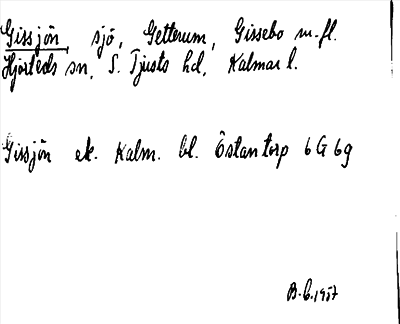 Gissjön, sjö, Getterum, Gissebo m. fl.
Hjorteds sn, S. Tjusts hd, Kalmar l.
Gissjön ek. Kalm. bl. Östantorp 6 G 6g
B. C. 1957